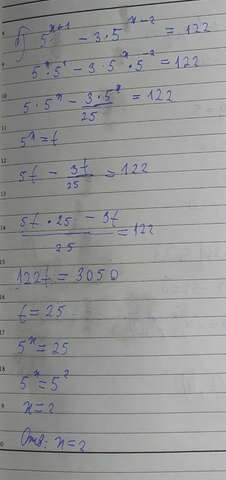 б) 5^(x+1) - 3·5^(x-2) = 122
5^x·5^1 - 3·5^x·5^(-2) = 122
5·5^x - (3·5^x)/25 = 122
5^x = t
5t - 3t/25 = 122
(5t·25 - 3t)/25 = 122
122t = 3050
t = 25
5^x = 25
5^x = 5^2
x = 2
Отв: x = 2